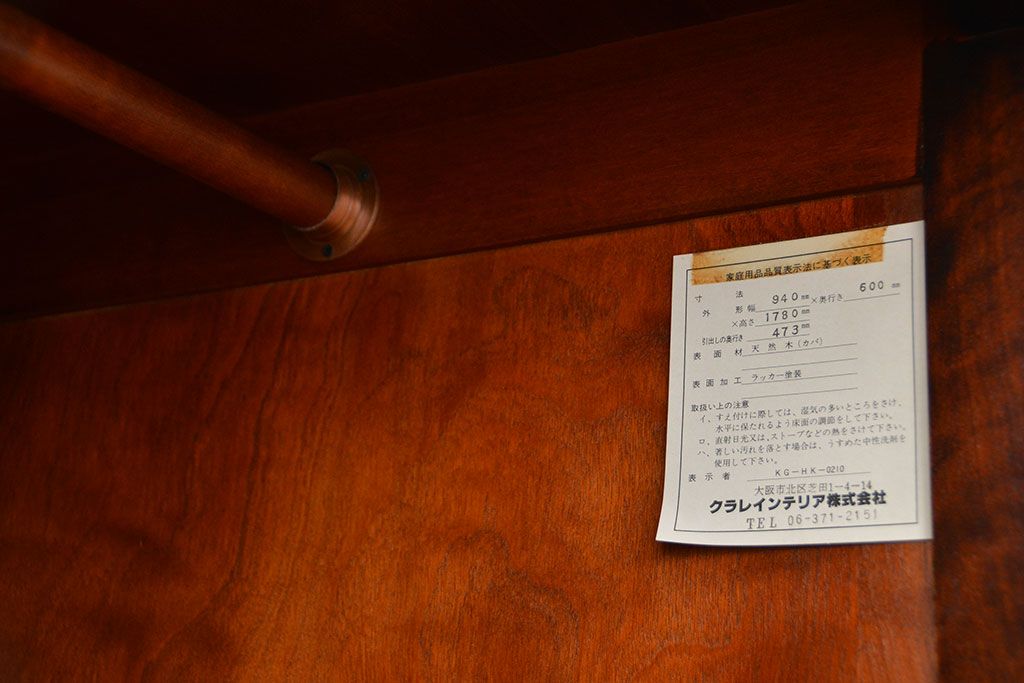 家庭用品品質表示法に基づく表示
寸法
外形幅 940mm×奥行き 600mm
×高さ 1780mm
引出しの奥行き 473mm
表面材 天然木(カバ)
表面加工 ラッカー塗装
取扱い上の注意
イ、すえ付けに際しては、湿気の多いところをさけ、
水平に保たれるよう床面の調節をして下さい。
ロ、直射日光又は、ストーブなどの熱をさけて下さい。
ハ、著しい汚れを落とす場合は、うすめた中性洗剤を
使用して下さい。
表示者 KG-HK-0210
大阪市北区芝田1-4-14
クラレインテリア株式会社
TEL 06-371-2151